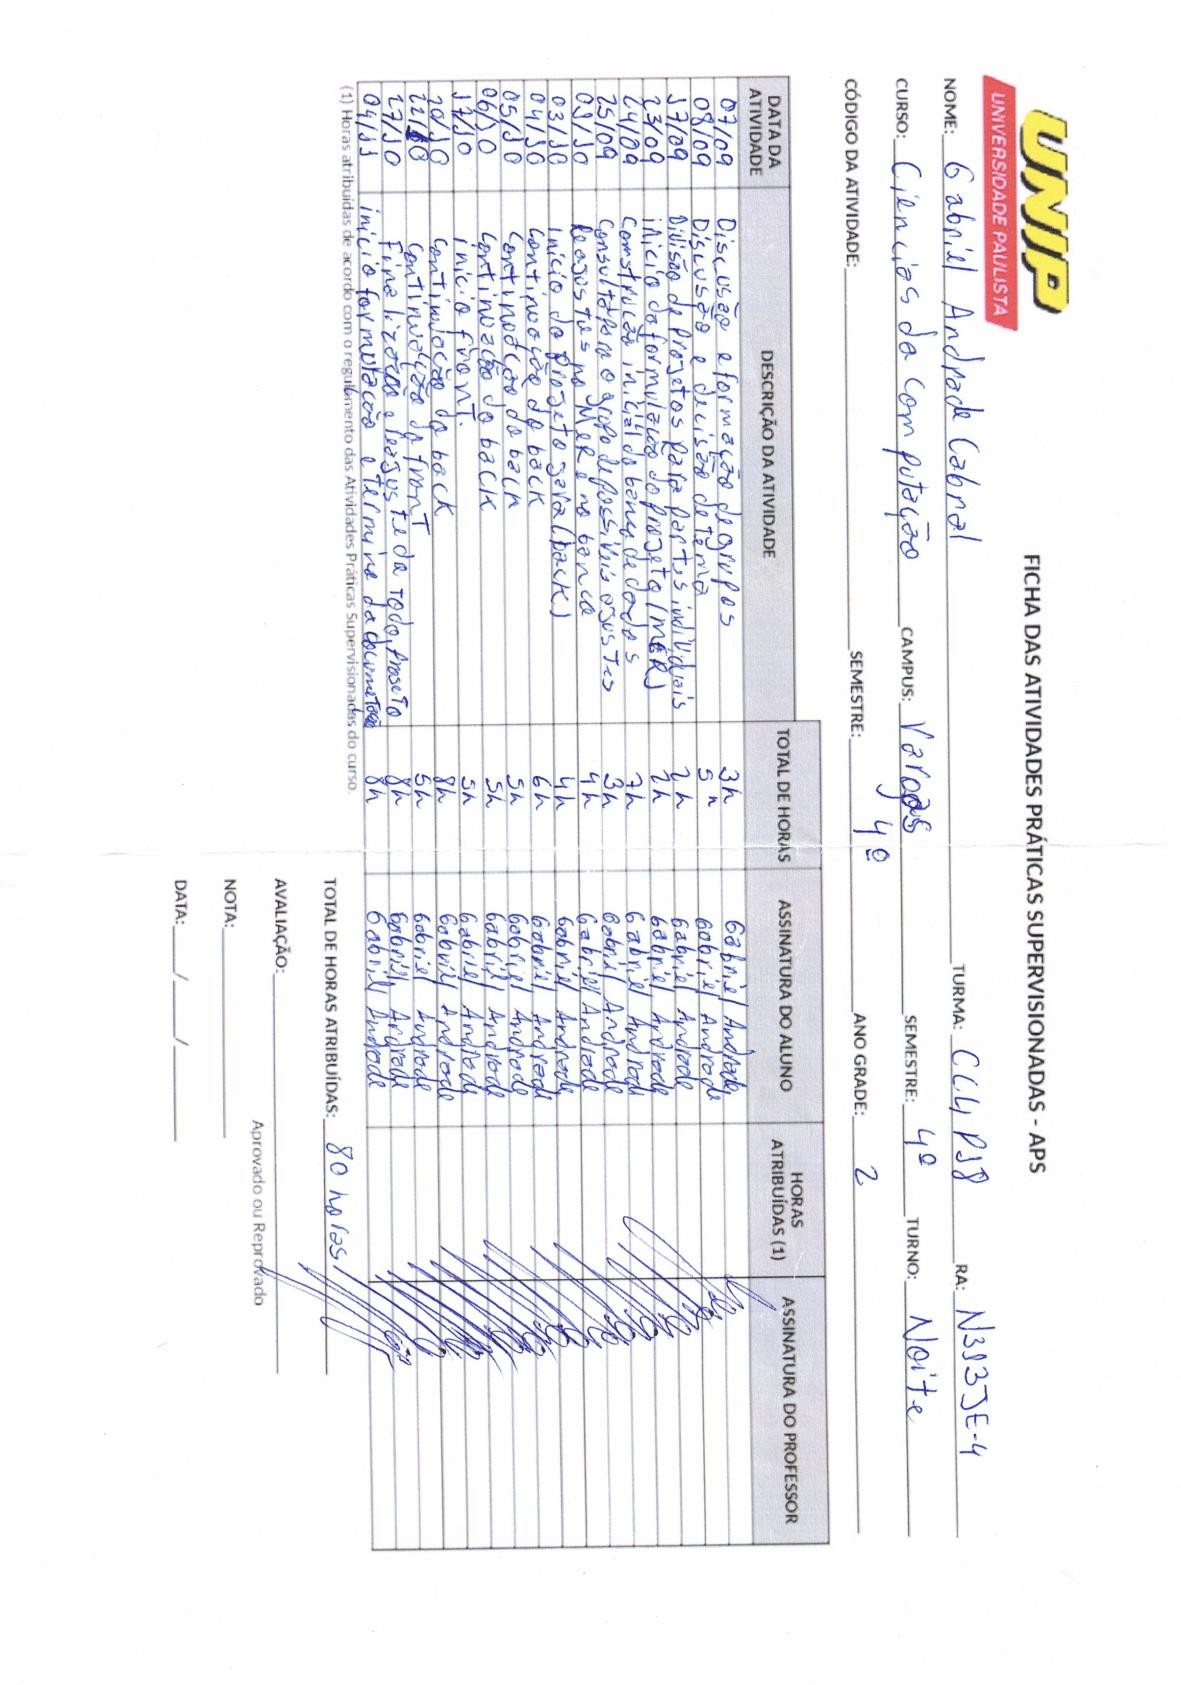 UNIP
UNIVERSIDADE PAULISTA
FICHA DAS ATIVIDADES PRÁTICAS SUPERVISIONADAS - APS
NOME: Gabriel Andrade Cabral TURMA: CC4P18 RA: N3937E-4
CURSO: Ciencias da computação CAMPUS: Vargas SEMESTRE: 4º TURNO: Noite
CÓDIGO DA ATIVIDADE: SEMESTRE: 4º ANO GRADE: 2
DATA DA ATIVIDADE DESCRIÇÃO DA ATIVIDADE TOTAL DE HORAS ASSINATURA DO ALUNO HORAS ATRIBUÍDAS (1) ASSINATURA DO PROFESSOR
07/09 Discusão e formação de grupos 3h Gabriel Andrade
08/09 Discusão e decisão de tema 5h Gabriel Andrade
17/09 Divisão de projetos para partes individuais 2h Gabriel Andrade
23/09 inicio da formulação do projeto (MER) 2h Gabriel Andrade
24/09 Construição inicial do banco de dados 7h Gabriel Andrade
25/09 Consulta para o grupo de possiveis ajustes 3h Gabriel Andrade
01/10 Reajustes no MER e no banco 4h Gabriel Andrade
03/10 Início do projeto java (back) 4h Gabriel Andrade
04/10 continuação do back 6h Gabriel Andrade
05/10 Continuação do back 5h Gabriel Andrade
06/10 Continuação do back 5h Gabriel Andrade
17/10 inicio front. 5h Gabriel Andrade
20/10 continuação do back 8h Gabriel Andrade
22/10 continuação do front 5h Gabriel Andrade
27/10 Finalização e reajuste da todo projeto 8h Gabriel Andrade
04/11 inicio formulação e termino da documetação 8h Gabriel Andrade
(1) Horas atribuídas de acordo com o regulamento das Atividades Práticas Supervisionadas do curso.
TOTAL DE HORAS ATRIBUÍDAS: 80 horas
AVALIAÇÃO:
Aprovado ou Reprovado
NOTA:
DATA: / /